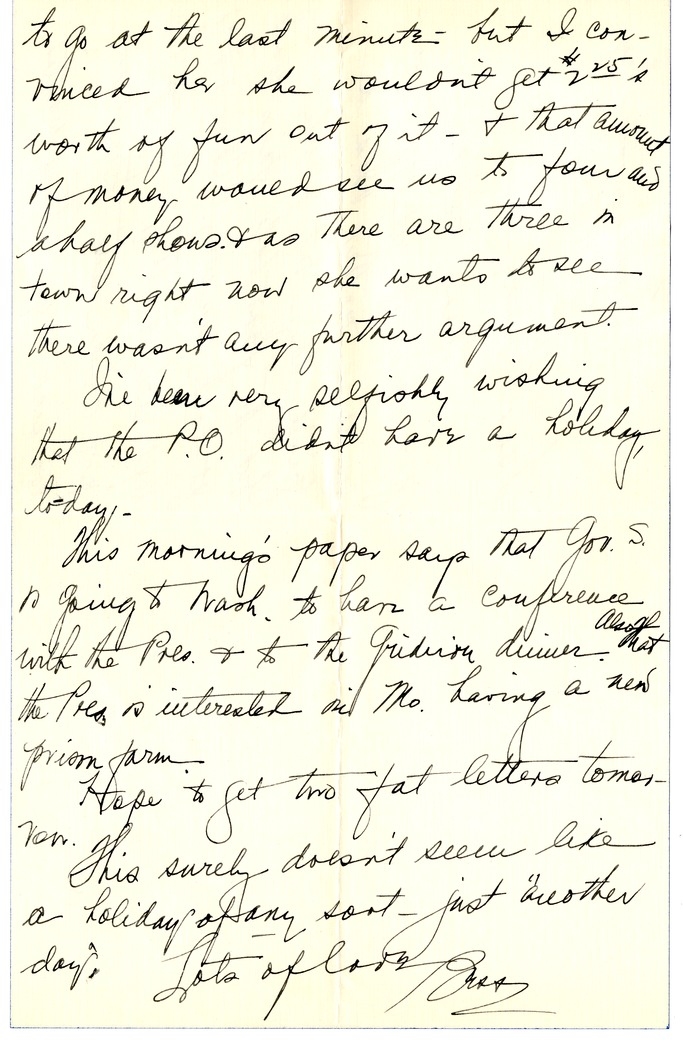 to go at the last minute - but I con-
vinced her she wouldn't get $2.25's
worth of fun out of it - & that amount
of money would see us to four and
a half shows. & as there are three in
town right now she wants to see
there wasn't any further argument.
I've been very selfishly wishing
that the P.O. didn't have a holiday,
to-day. -
This morning's paper says that Gov. S.
is going to Wash. to have a conference
with the Pres. & to the Gridiron dinner. Also that
the Pres. is interested in Mo. having a new
prison farm.
Hope to get two fat letters tomor-
row.
This surely doesn't seem like
a holiday of any sort - just "another
day".
Lots of love Bess